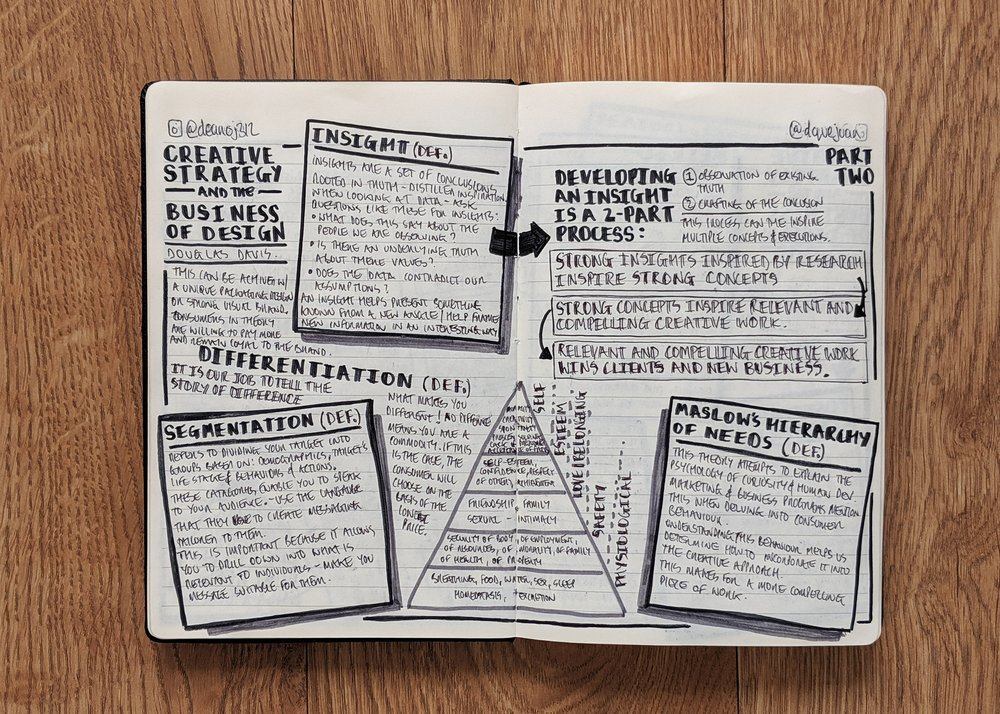 @deanoj312
CREATIVE
STRATEGY
— AND THE —
BUSINESS
OF DESIGN
DOUGLAS DAVIS.
THIS CAN BE ACHIEVED W/
A UNIQUE PACKAGING DESIGN
OR STRONG VISUAL BRAND.
CONSUMERS IN THEORY
ARE WILLING TO PAY MORE
AND REMAIN LOYAL TO THE BRAND.
DIFFERENTIATION (DEF.)
IT IS OUR JOB TO TELL THE
STORY OF DIFFERENCE
WHAT MAKES YOU
DIFFERENT! NO DIFFERENCE
MEANS YOU ARE A
COMMODITY. IF THIS
IS THE CASE, THE
CONSUMER WILL
CHOOSE ON THE
BASIS OF THE
LOWEST
PRICE.
INSIGHT (DEF.)
INSIGHTS ARE A SET OF CONCLUSIONS
ROOTED IN TRUTH - DISTILLED INSPIRATION.
WHEN LOOKING AT DATA - ASK
QUESTIONS LIKE THESE FOR INSIGHTS:
• WHAT DOES THIS SAY ABOUT THE
PEOPLE WE ARE OBSERVING?
• IS THERE AN UNDERLYING TRUTH
ABOUT THESE VALUES?
• DOES THE DATA CONTRADICT OUR
ASSUMPTIONS?
AN INSIGHT HELPS PRESENT SOMETHING
KNOWN FROM A NEW ANGLE / HELP FRAME
NEW INFORMATION IN AN INTERESTING WAY
SEGMENTATION (DEF.)
REFERS TO DIVIDING YOUR TARGET INTO
GROUPS BASED ON: DEMOGRAPHICS, TARGET'S
LIFE STAGE & BEHAVIOURS & ACTIONS.
THESE CATAGORIES ENABLE YOU TO SPEAK
TO YOUR AUDIENCE. - USE THE LANGUAGE
THAT THEY USE TO CREATE MESSAGING
TAILORED TO THEM.
THIS IS IMPORTANT BECAUSE IT ALLOWS
YOU TO DRILL DOWN INTO WHAT IS
RELEVANT TO INDIVIDUALS - MAKE YOUR
MESSAGE SUITABLE FOR THEM.
@davejuan
PART
TWO
DEVELOPING
AN INSIGHT
IS A 2-PART
PROCESS:
1 OBSERVATION OF EXISTING
TRUTH
2 CRAFTING OF THE CONCLUSION
THIS PROCESS CAN THE INSPIRE
MULTIPLE CONCEPTS & EXECUTIONS.
STRONG INSIGHTS INSPIRED BY RESEARCH
INSPIRE STRONG CONCEPTS
STRONG CONCEPTS INSPIRE RELEVANT AND
COMPELLING CREATIVE WORK.
RELEVANT AND COMPELLING CREATIVE WORK
WINS CLIENTS AND NEW BUSINESS.
SELF
ESTEEM
LOVE/BELONGING
SAFETY
PHYSIOLOGICAL
CREATIVITY
PROBLEM SOLVING
SELF-ESTEEM,
CONFIDENCE, RESPECT
OF OTHERS, ACHIEVEMENT
FRIENDSHIP, FAMILY
SEXUAL - INTIMACY
SECURITY OF BODY, OF EMPLOYMENT,
OF RESOURCES, OF MORALITY, OF FAMILY
OF HEALTH, OF PROPERTY
BREATHING, FOOD, WATER, SEX, SLEEP
HOMEOSTASIS, EXCRETION
MASLOW'S HIERARCHY
OF NEEDS (DEF.)
THIS THEORY ATTEMPTS TO EXPLAIN THE
PSYCHOLOGY OF CURIOSITY & HUMAN DEV.
MARKETING & BUSINESS PROGRAMS MENTION
THIS WHEN DELVING INTO CONSUMER
BEHAVIOUR.
UNDERSTANDING THIS BEHAVIOUR HELPS US
DETERMINE HOW TO INCORPORATE IT INTO
THE CREATIVE APPROACH.
THIS MAKES FOR A MORE COMPELLING
PIECE OF WORK.